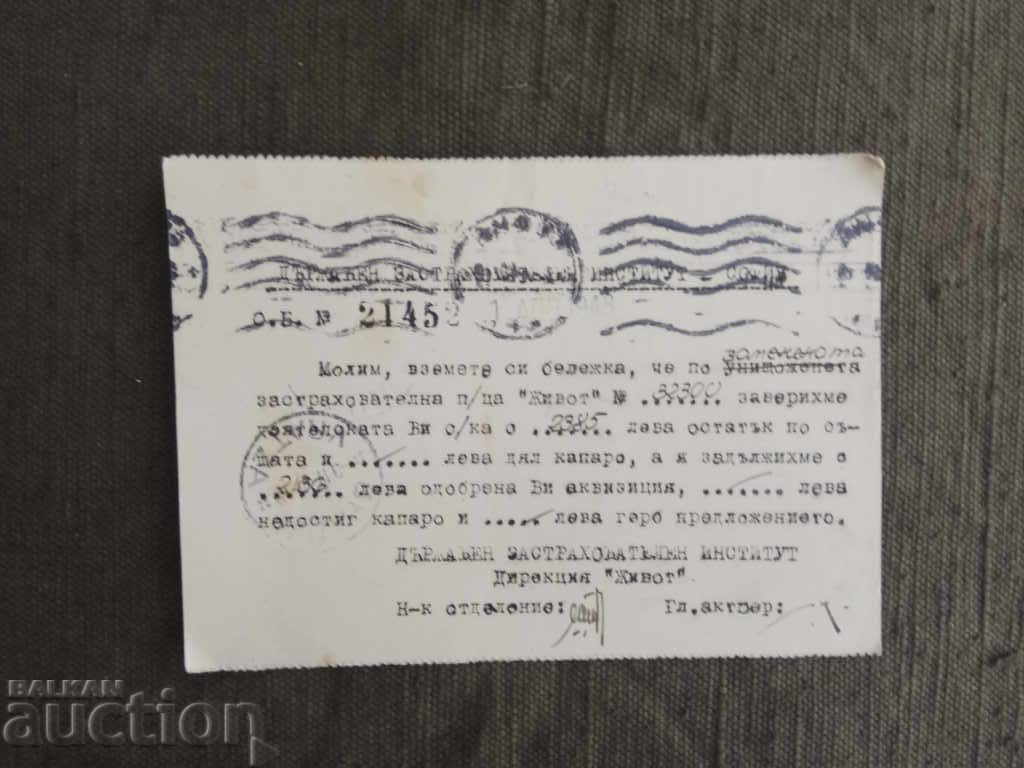 ДЪРЖАВЕН ЗАСТРАХОВАТЕЛЕН ИНСТИТУТ - СОФИЯ
О.Б. № 21452
заменената
Молим, вземете си бележка, че по Унищожената
застрахователна п/ца "Живот" № 32300 заверихме
сметка с 2385 лева остатък по съ-
щата и ........ лева дял капаро, а я задължихме с
лева одобрена Ви аквизиция, ....... лева
недостиг капаро и ..... лева герб предложението.
ДЪРЖАВЕН ЗАСТРАХОВАТЕЛЕН ИНСТИТУТ
Дирекция "Живот".
Н-к отделение: Гл.актюер:
BALKAN
auction